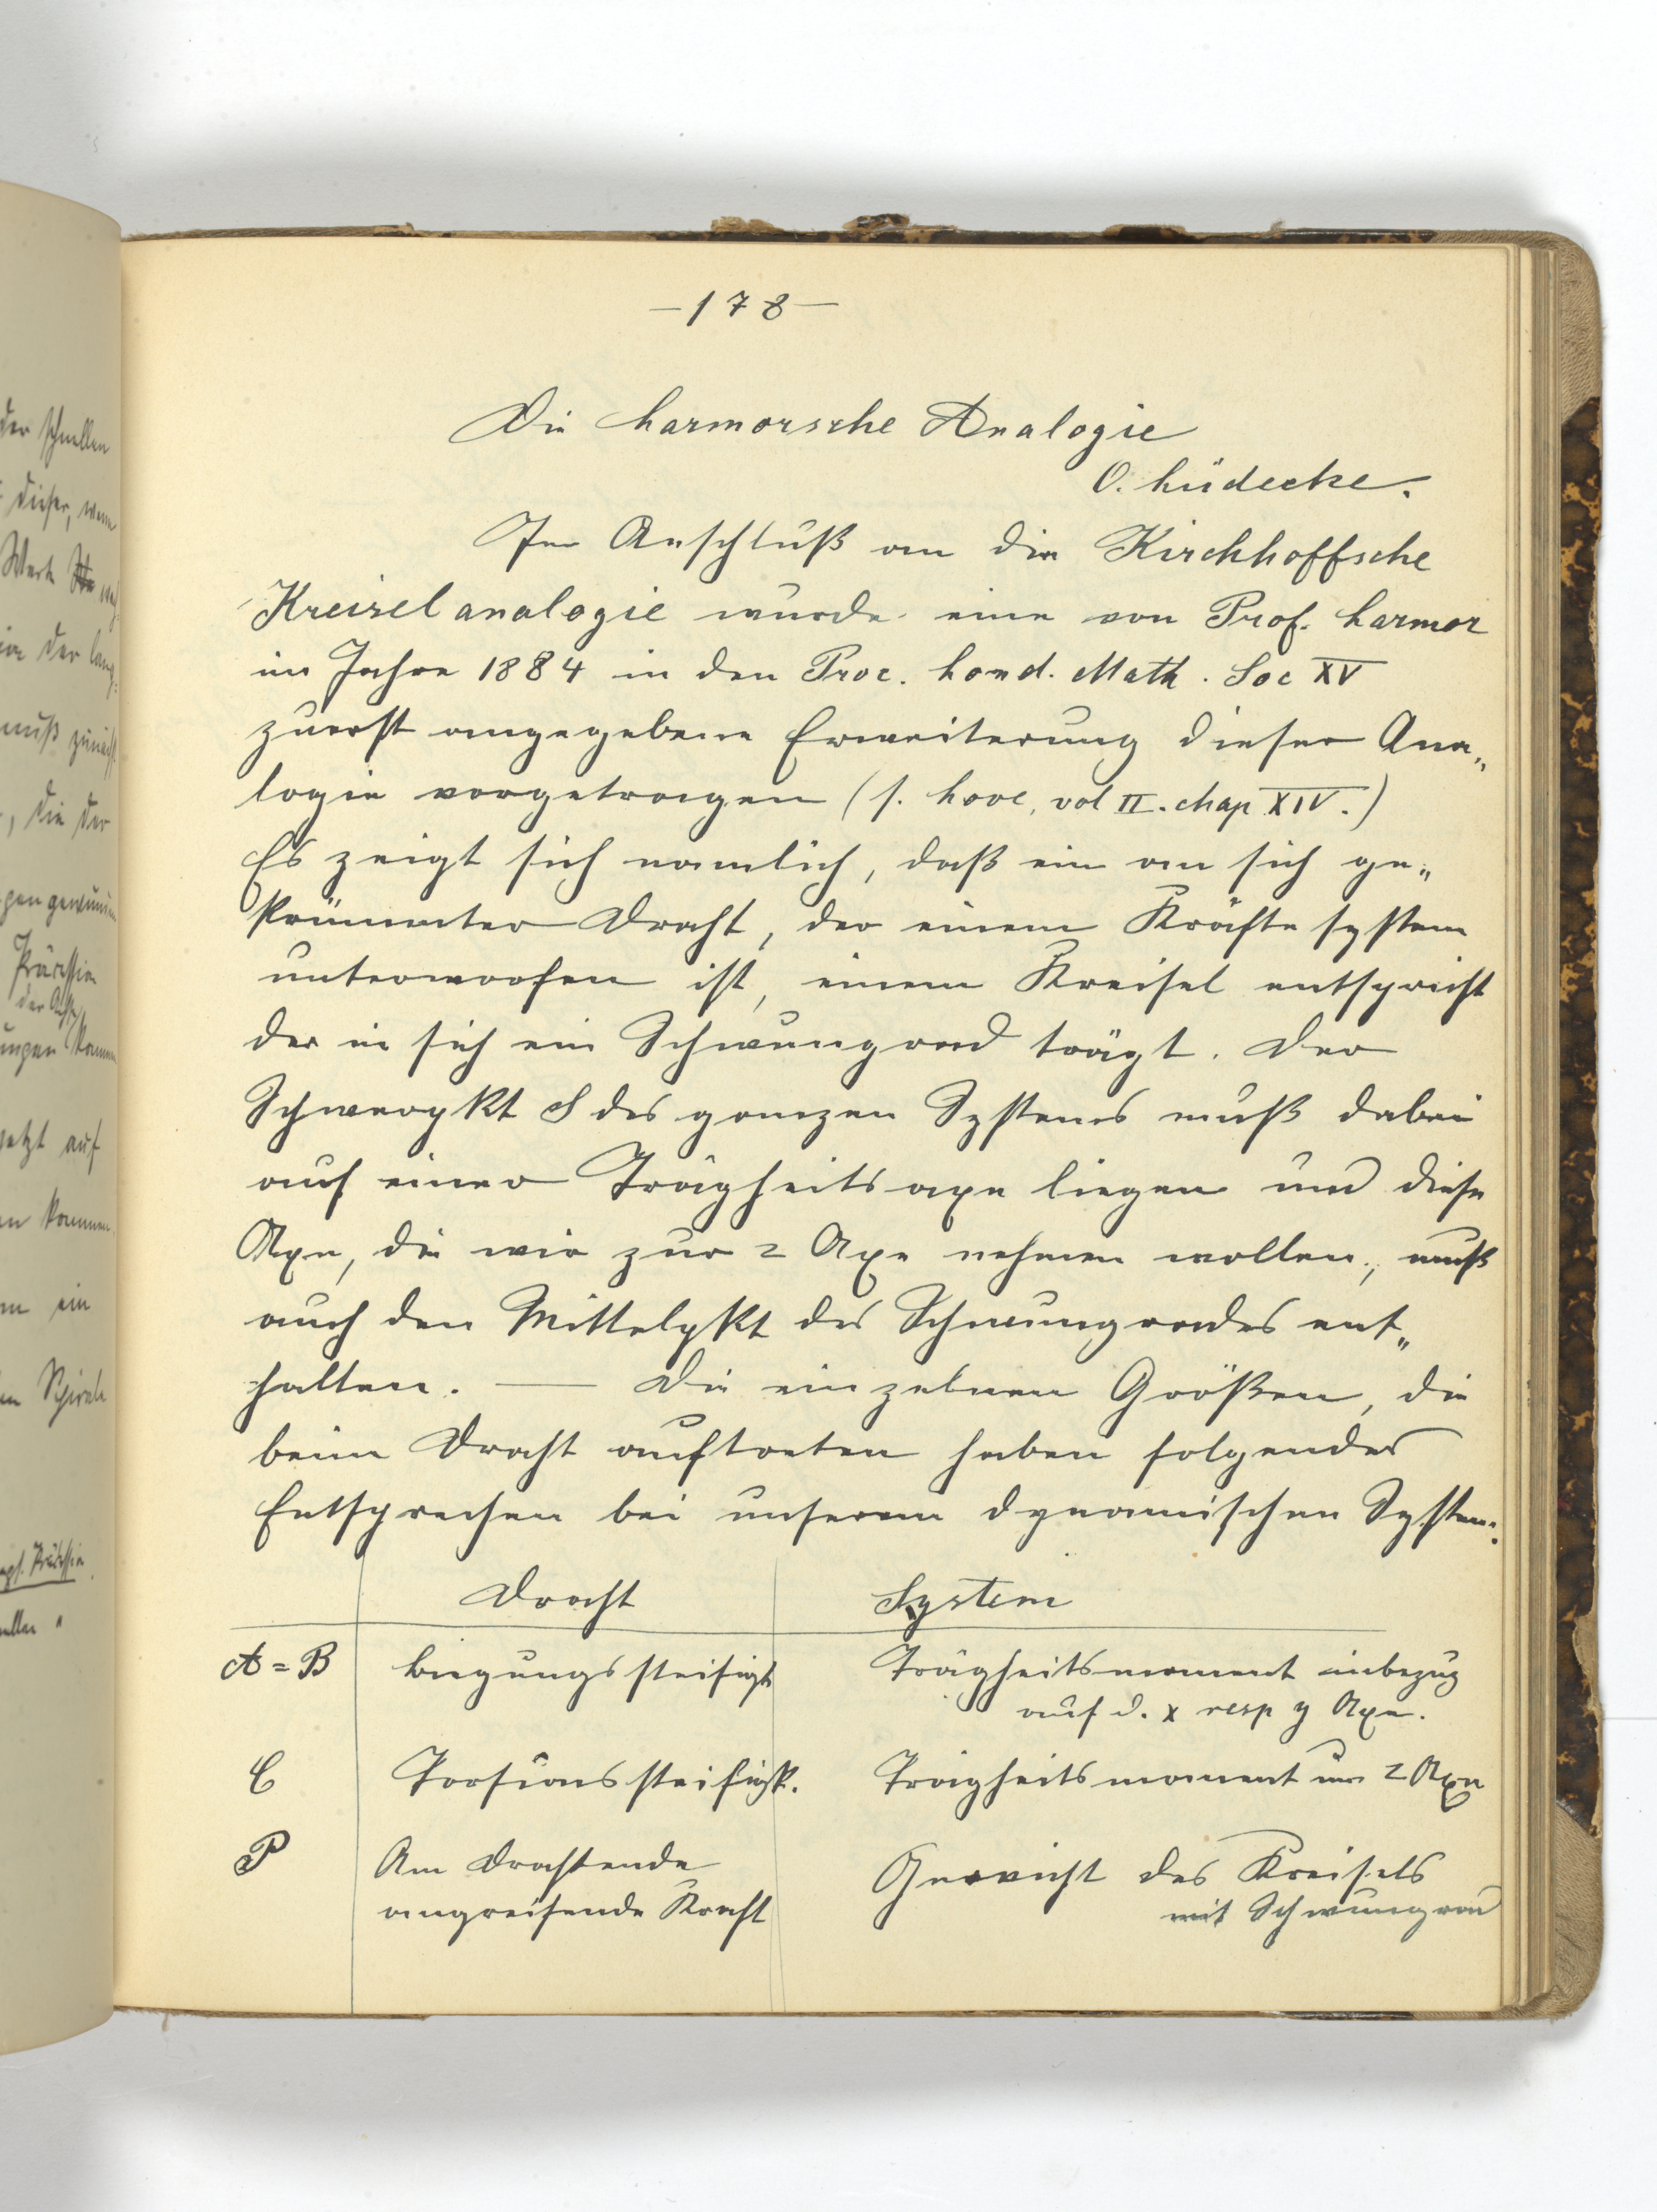 — 178 —
Die Larmorsche Analogie
O. Lüdecke.
Im Anschluß an die Kirchhoffsche
Kreiselanalogie wurde eine von Prof. Larmor
im Jahre 1884 in den Proc. Lond. Math. Soc XV
zuerst angegebene Erweiterung dieser Ana„
logie vorgetragen (s. Love, vol II. chap XIV.)
Es zeigt sich namlich, daß ein an sich ge„
krümmter Draht, der einem Kräftesystem
unterworfen ist, einem Kreisel entspricht
der in sich ein Schwungrad trägt. Der
Schwerpkt S des ganzen Systems muß dabei
auf einer Trägheitsaxe liegen und diese
Axe, die wir zur z Axe nehmen wollen, muß
auch den Mittelpkt des Schwungrades ent„
halten. — Die einzelnen Größen, die
beim Draht auftreten haben folgendes
Entsprechen bei unserem dynamischen System:
Draht System
A = B Biegungssteifigkt Trägheitsmoment inbezug
auf d. x resp y Axe.
C Torsionssteifigk. Trägheitsmoment um z Axe
P Am Drahtende Gewicht des Kreisels
angreifende Kraft mit Schwungrad
der schnellen
dieser, wenn
Werk
in der lang
muß zunächst
, die der
Präcession
der Achse
jetzt auf
kommen
ein
Spirale
Präcession